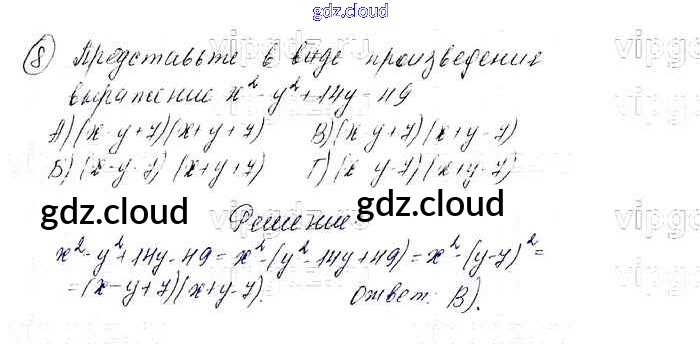 gdz.cloud
8 Представьте в виде произведения
выражение x² - y² + 14y - 49
А) (x - y + 7)(x + y + 7) В) (x - y + 7)(x + y - 7)
Б) (x - y - 7)(x + y + 7) Г) (x - y - 7)(x + y - 7)
gdz.cloud gdz.cloud
Решение
x² - y² + 14y - 49 = x² - (y² - 14y + 49) = x² - (y - 7)² =
= (x - y + 7)(x + y - 7). Ответ: В).